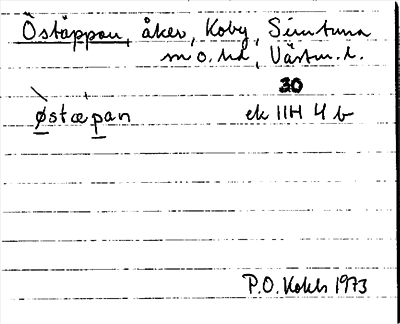 Östäppan, åker, Koby, Simtuna
sn o. hd, Västm. l.
30
østæpan ek 11H 4 b
P.O. Kohls 1973